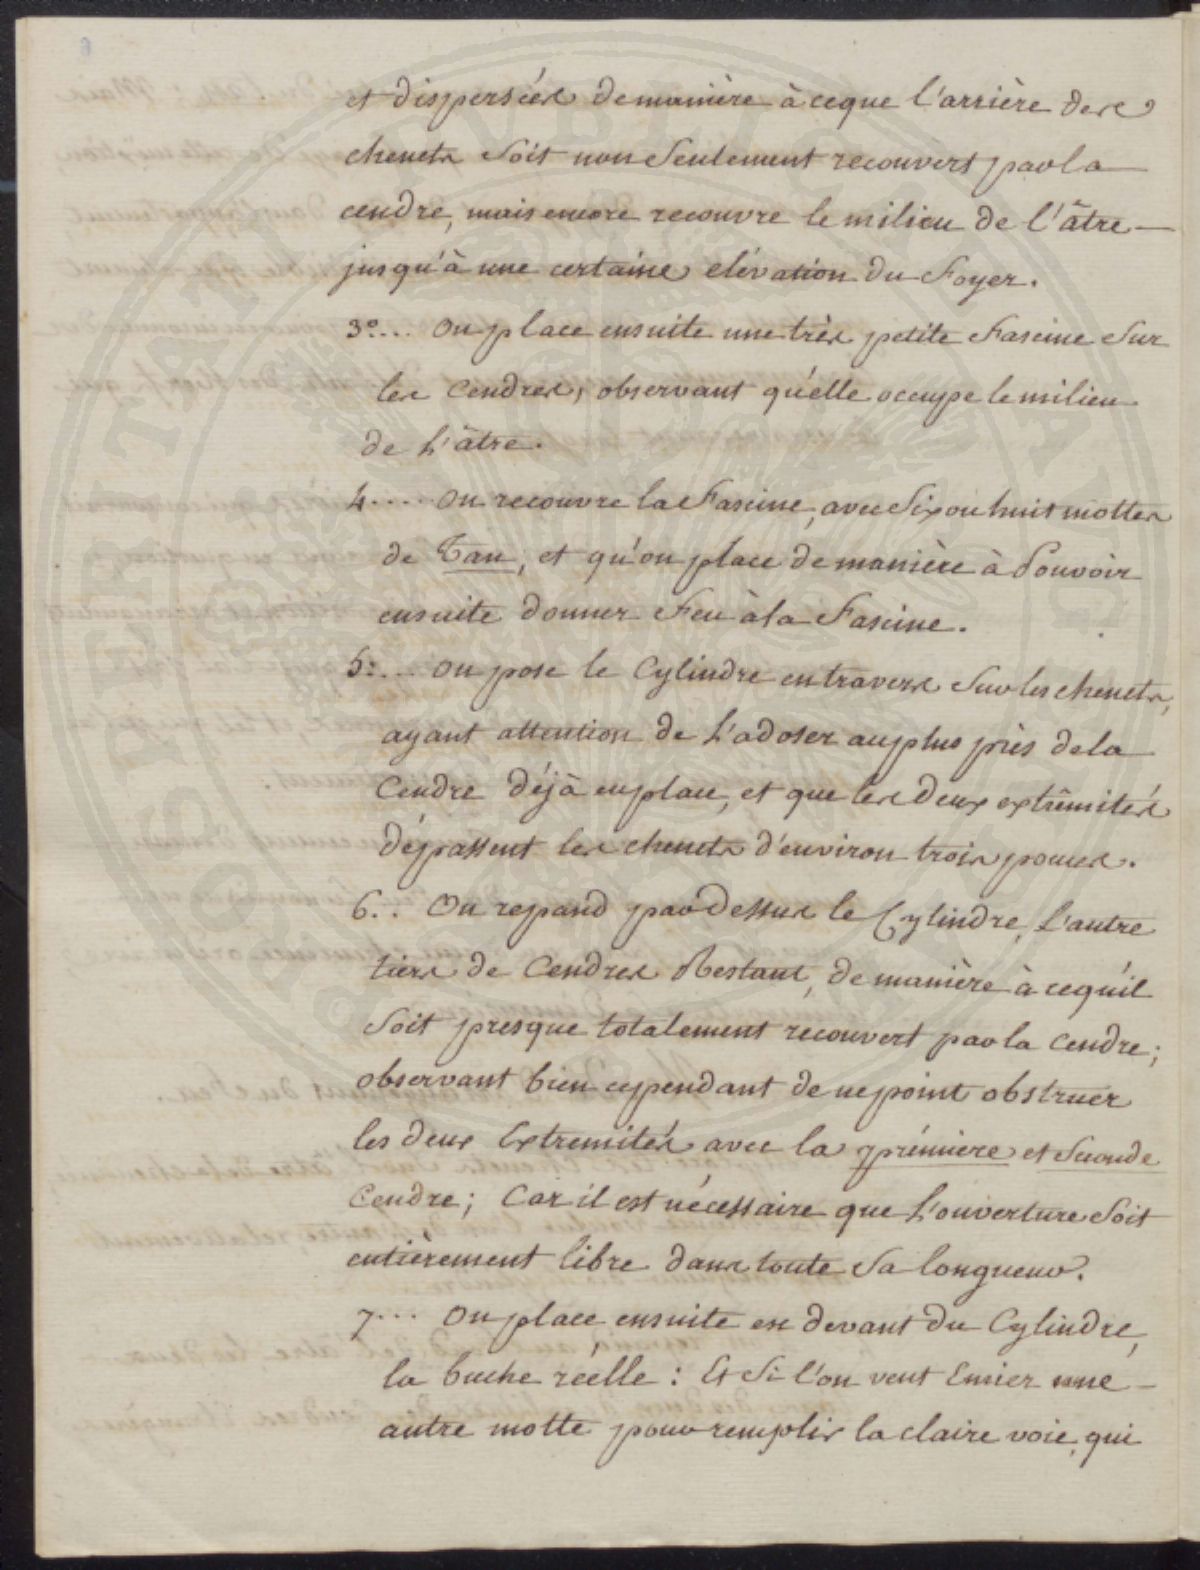 et dispersées de manière à ceque l'arrière des
chenets soit non seulement recouvert par la
cendre, mais encore recouvre le milieu de l'âtre —
jusqu'à une certaine élévation du Foyer.
3º... On place ensuite une très petite Fascine sur
les Cendres, observant qu'elle occupe le milieu
de L'âtre.
4.... On recouvre la Fascine, avec Six ou huit mottes
de Tan, et qu'on place de manière à Pouvoir
ensuite donner Feu à la Fascine.
5:... On pose le Cylindre en travers Sur les chenets,
ayant attention de L'adosser au plus près de la
Cendre déjà en place, et que les deux extrêmités
dépassent les chenets d'environ trois pouces.
6... On repand par Dessus le Cylindre, L'autre
tiers de Cendres Restant, de manière à cequ'il
Soit presque totalement recouvert par la Cendre;
observant bien cependant de ne point obstruer
les deux Extremités avec la prémière et Seconde
Cendre; Car il est nécessaire que L'ouverture Soit
entièrement libre dans toute Sa longueur.
7... On place ensuite en devant du Cylindre,
la buche réelle : Et Si l'on veut Emier une —
autre motte pour remplir la claire voie, qui
SUPERITAT PUBLICA